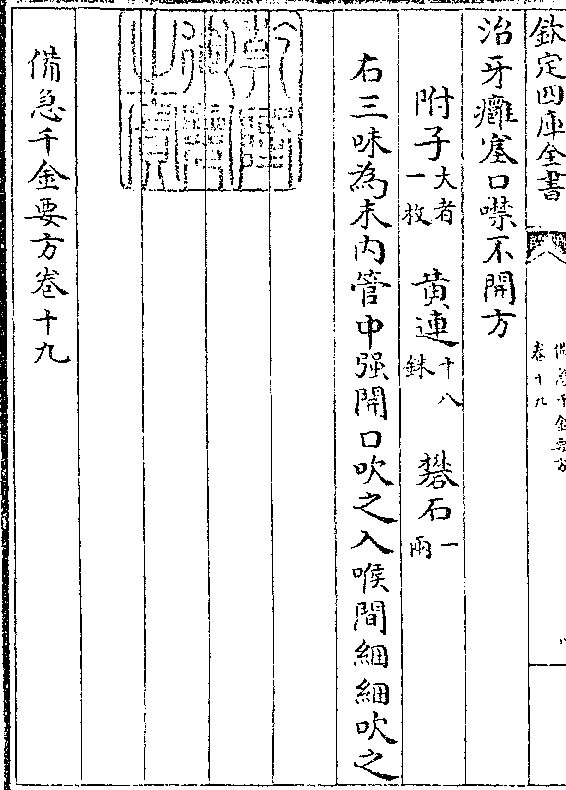 欽定四庫全書
備急千金要方
卷十九
治牙癰塞口噤不開方
附子大者一枚 黄連十八銖 礬石一兩
右三味為末内管中强開口吹之入喉間細細吹之
備急千金要方卷十九